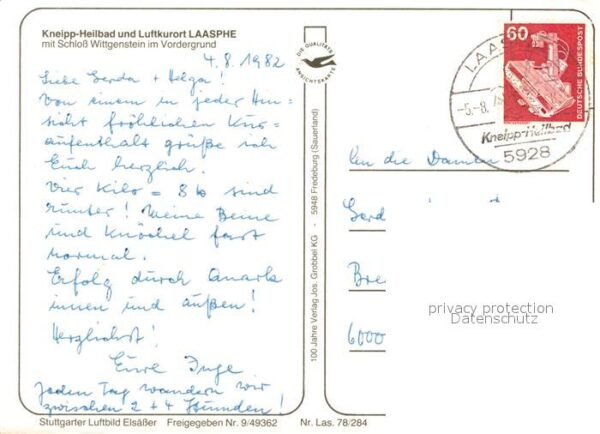 Kneipp-Heilbad und Luftkurort LAASPHE
mit Schloß Wittgenstein im Vordergrund
4.8.1982
Liebe Gerda + Helga!
Von einem in jeder Hin=
sicht fröhlichen Kur=
aufenthalt grüße ich
Euch herzlich.
Vier Kilo = 8 ℔ sind
runter! Meine Beine
und Knöchel fast
normal.
Erfolg durch Quark
innen und außen!
Herzlichst!
Eure Inge
Jeden Tag wandern wir
zwischen 2 + 4 Stunden!
Stuttgarter Luftbild Elsäßer Freigegeben Nr. 9/49362 Nr. Las. 78/284
DIE QUALITÄTS
ANSICHTSKARTE
100 Jahre Verlag Jos. Grobbel KG - 5948 Fredeburg (Sauerland)
60
DEUTSCHE BUNDESPOST
LAAS
-5.-8.
Kneipp-Heilbad
5928
An die Damen
Gerd
Bre
6000
privacy protection
Datenschutz